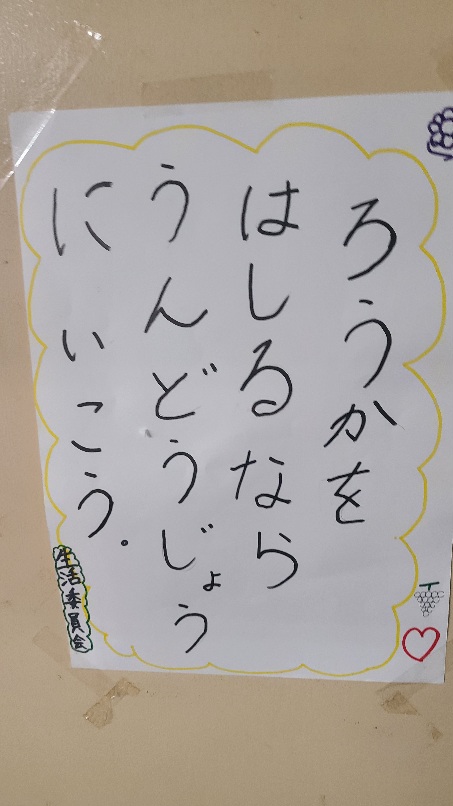 ろうかを
はしるなら
うんどうじょう
にいこう。
生活委員会